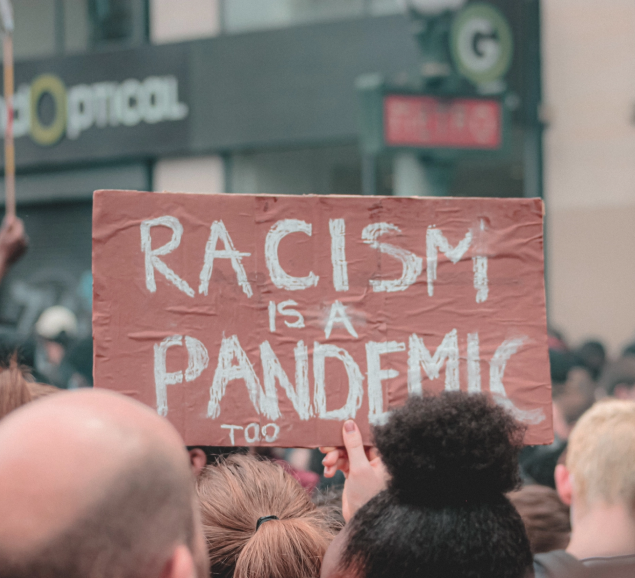 OPTICAL
G
METRO
RACISM
IS A
PANDEMIC
TOO